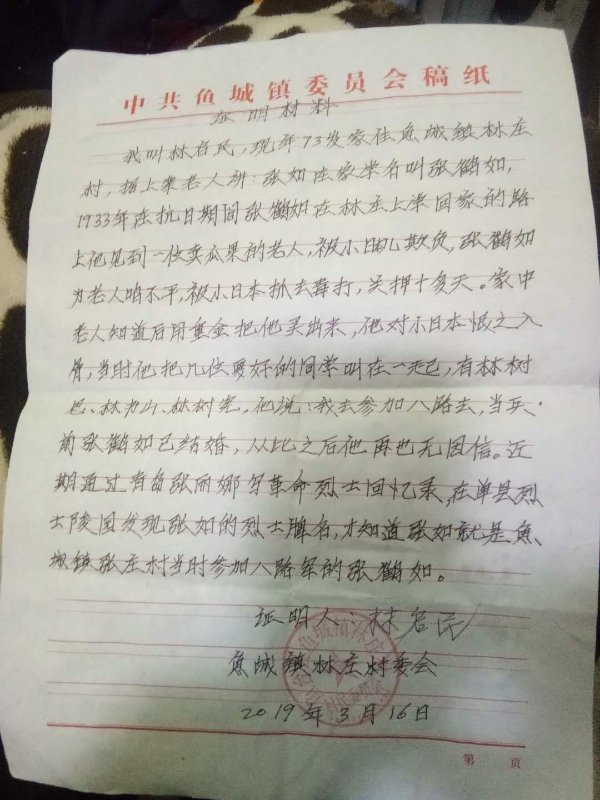 中共鱼城镇委员会稿纸
证明材料
我叫林启民，现年73岁家住鱼城镇林庄
村，指上辈老人讲：张如在家学名叫张鹤如，
1933年在抗日期间张鹤如在林庄上学回家的路
上他见到一位卖瓜果的老人，被小日本儿欺负，张鹤如
为老人鸣不平，被小日本抓去毒打，关押十多天。家中
老人知道后用重金把他买出来，他对小日本恨之入
骨，当时他把几位要好的同学叫在一起，有林树
林为山、林树宪，他说：我去参加八路去，当兵
前张鹤如已结婚，从此之后他再也无回信。近
期通过看留张丽娜写革命烈士回忆录，在单县烈
士陵园发现张如的烈士牌名，才知道张如就是鱼
城镇张庄村当时参加八路军的张鹤如。
证明人：林启民
鱼城镇林庄村委会
2019年3月16日
第 页